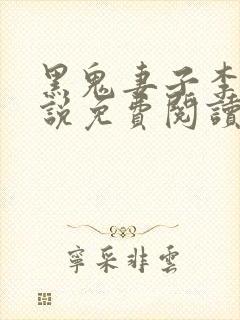 黑鬼妻子李
說免費閱讀
寧采非雲